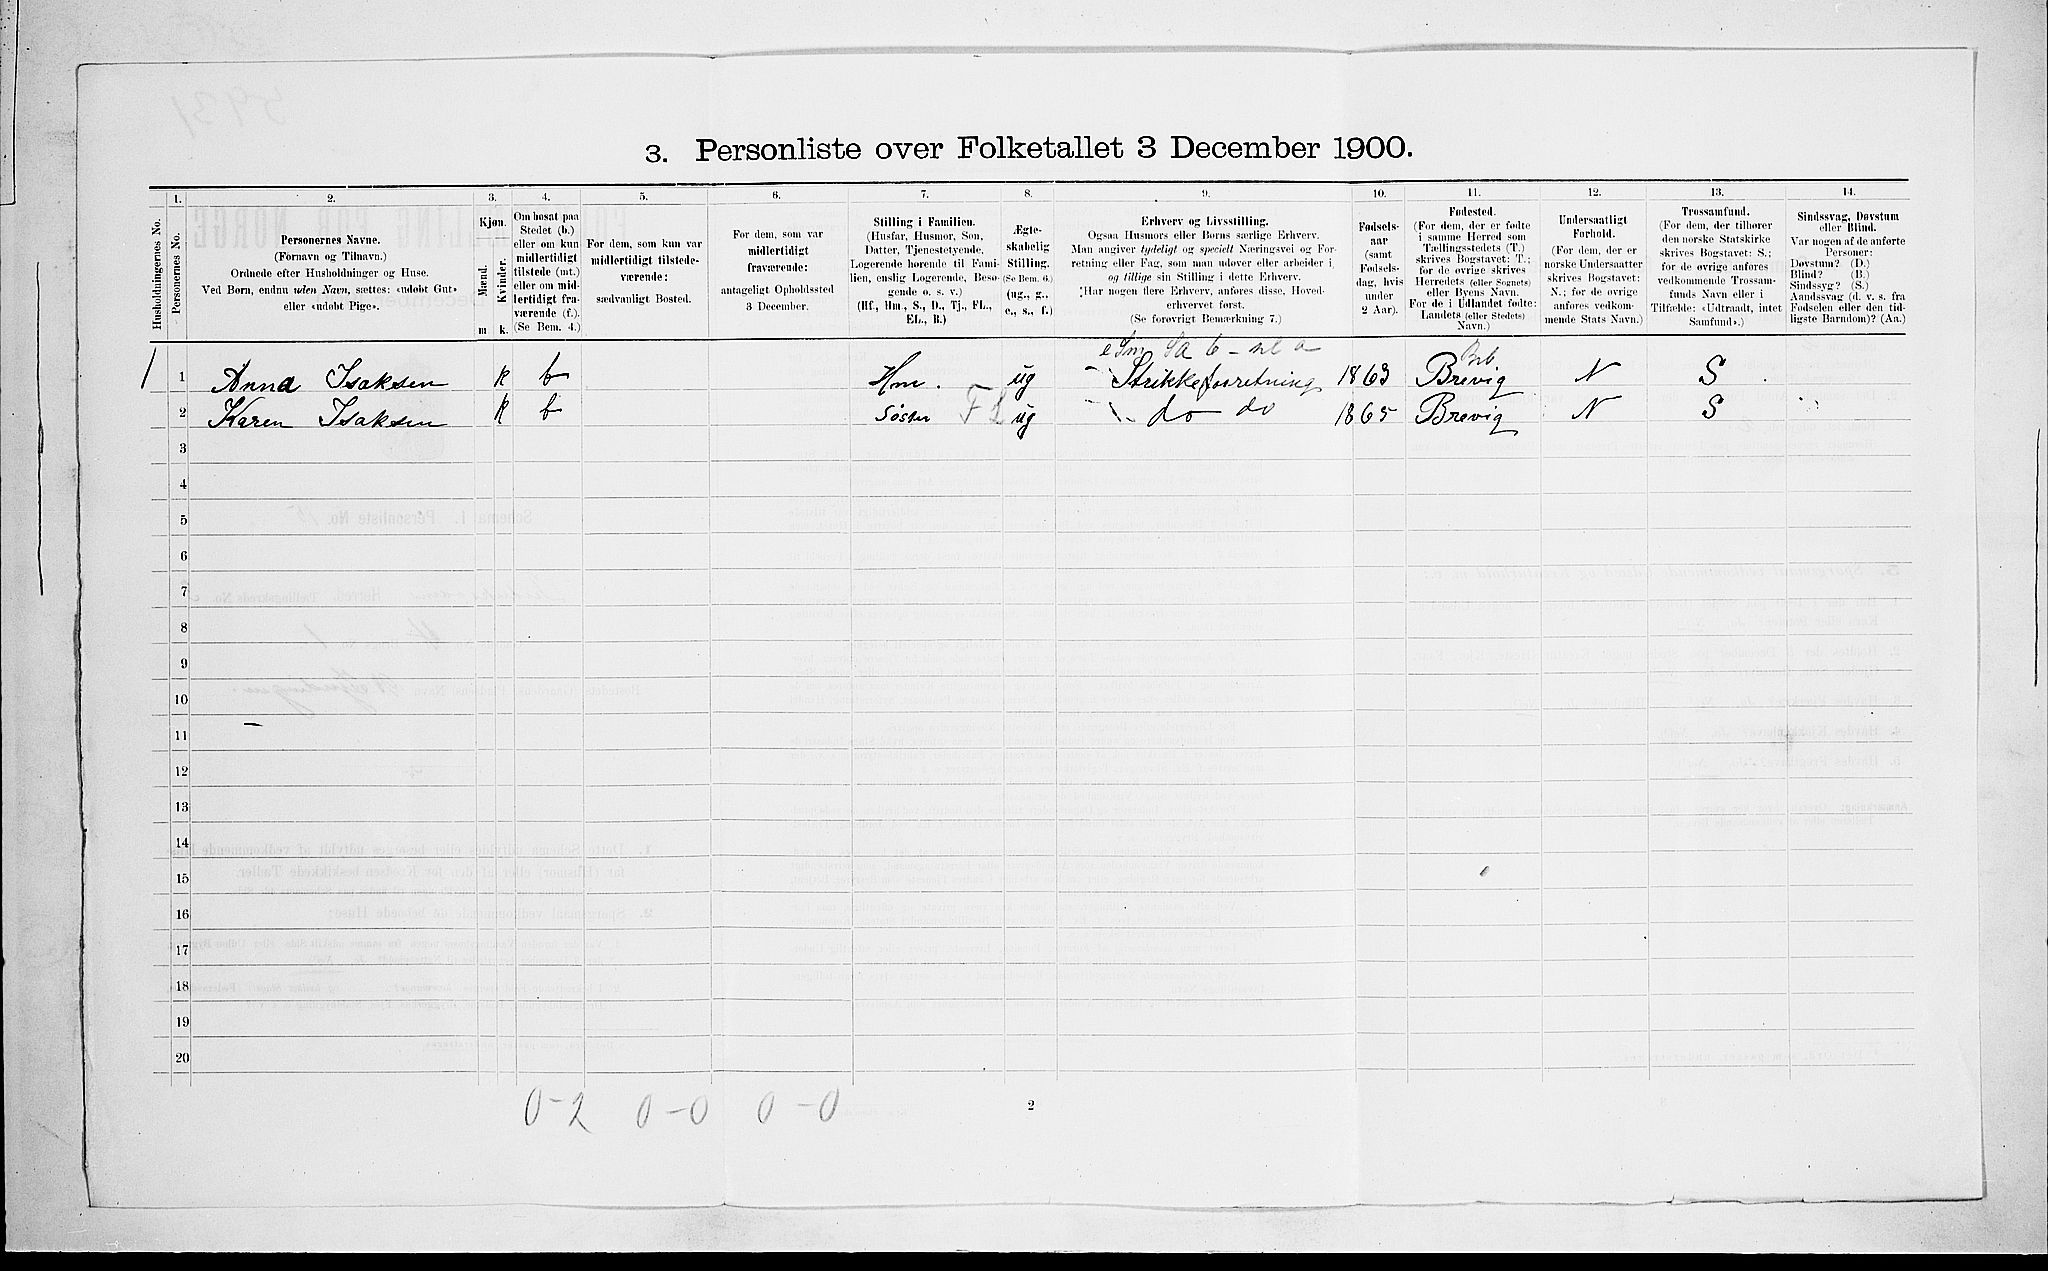 3. Personliste over Folketallet 3 December 1900.
1. 2. 3. 4. 5. 6. 7. 8. 9. 10. 11. 12. 13. 14.
Husholdningernes No.
Personernes No.
Personernes Navne.
(Fornavn og Tilnavn.)
Ordnede efter Husholdninger og Huse.
Ved Børn, endnu uden Navn, sættes: «udøbt Gut»
eller «udøbt Pige».
Kjøn.
Mænd.
Kvinder.
m k.
Om bosat paa
Stedet (b.)
eller om kun
midlertidigt
tilstede (mt.)
eller om mid-
lertidigt fra-
værende (f.).
(Se Bem. 4.)
For dem, som kun var
midlertidigt tilstede-
værende:
sædvanligt Bosted.
For dem, som var
midlertidigt
fraværende:
antageligt Opholdssted
3 December.
Stilling i Familien.
(Husfar, Husmor, Søn,
Datter, Tjenestetyende,
Logerende hørende til Fami-
lien, enslig Logerende, Besø-
gende o. s. v.)
(Hf., Hm., S., D., Tj., FL.,
EL., B.)
Ægte-
skabelig
Stilling.
(Se Bem. 6.)
(ug., g.,
e., s., f.)
Erhverv og Livsstilling.
Ogsaa Husmors eller Børns særlige Erhverv.
Man angiver tydeligt og specielt Næringsvei og For-
retning eller Fag, som man udøver eller arbeider i,
og tillige sin Stilling i dette Erhverv.
Har nogen flere Erhverv, anføres disse, Hoved-
erhvervet først.
(Se forøvrigt Bemærkning 7.)
Fødsels-
aar
(samt
Fødsels-
dag, hvis
under
2 Aar).
Fødested.
(For dem, der er fødte
i samme Herred som
Tællingsstedets (T.)
skrives Bogstavet: T.;
for de øvrige skrives
Herredets (eller Sognets)
eller Byens Navn.
For de i Udlandet fødte:
Landets (eller Stedets)
Navn.)
Undersaatligt
Forhold.
(For dem, der er
norske Undersaatter
skrives Bogstavet:
N.; for de øvrige
anføres vedkom-
mende Stats Navn.)
Trossamfund.
(For dem, der tilhører
den norske Statskirke
skrives Bogstavet: S.;
for de øvrige anføres
vedkommende Trossam-
funds Navn eller i
Tilfælde: «Udtraadt, intet
Samfund».)
Sindssvag, Døvstum
eller Blind.
Var nogen af de anførte
Personer:
Døvstum? (D.)
Blind? (B.)
Sindssyg? (S.)
Aandssvag (d. v. s. fra
Fødselen eller den tid-
ligste Barndom)? (Aa.)
1 1 Anna Isaksen k b Hm. ug Strikkeforretning 1863 Brevig N S
2 Karen Isaksen k b Søster FL ug do do 1865 Brevig N S
3
4
5
6
7
8
9
10
11
12
13
14
15
16
17
18
19
20
0-2 0-0 0-0
2